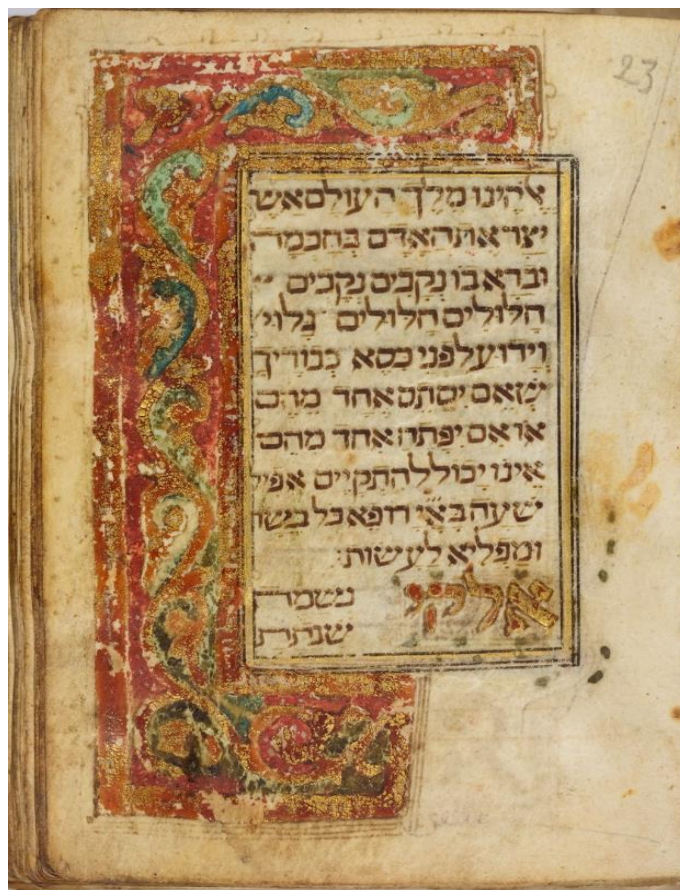 23
אלהינו מלך העולם אשר
יצר את האדם בחכמה
וברא בו נקבים נקבים
חלולים חלולים גלוי
וידוע לפני כסא כבודיך
שאם יסתם אחד מהם
או אם יפתח אחד מהם
אינו יכול להתקיים אפיל
שעה בא״י רופא כל בשר
ומפליא לעשות:
אלקי נשמה
שנתת